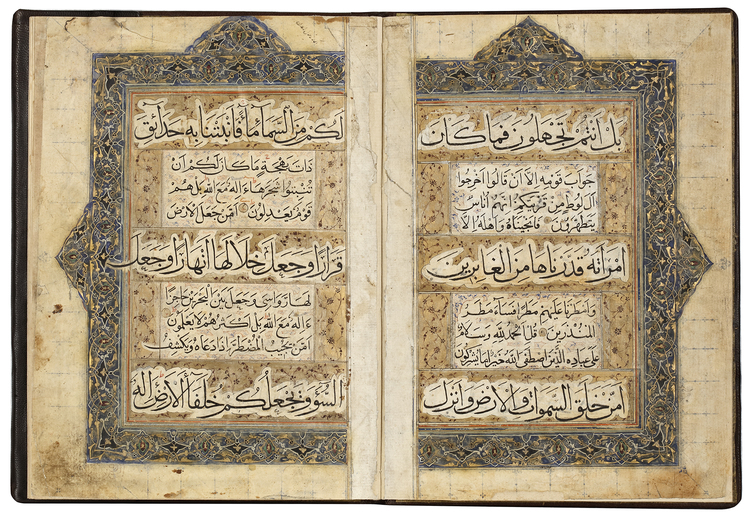 بل انتم تجهلون فما كان
جواب قومه الا ان قالوا اخرجوا
آل لوط من قريتكم انهم اناس
يتطهرون فانجيناه واهله الا
امرأته قدرناها من الغابرين
وامطرنا عليهم مطرا فساء مطر
المنذرين قل الحمد لله وسلام
على عباده الذين اصطفى آلله خير اما يشركون
امن خلق السموات والارض وانزل
لكم من السماء ماء فانبتنا به حدائق
ذات بهجة ما كان لكم ان
تنبتوا شجرها ءاله مع الله بل هم
قوم يعدلون امن جعل الارض
قرارا وجعل خلالها انهارا وجعل
لها رواسي وجعل بين البحرين حاجزا
ءاله مع الله بل اكثرهم لا يعلمون
امن يجيب المضطر اذا دعاه ويكشف
السوء ويجعلكم خلفاء الارض اله